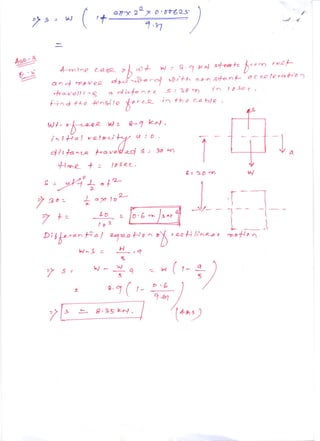 ⇒ S = W ( 1 +
9.81 )
=
A mine cage of wt W = 8.9 kN starts from rest
and moves downward with constant acceleration
travelling a distance S = 30 m in 10 sec.
find the tensile force in the cable.
Wt. of cage W = 8.9 kN.
initial velocity u = 0.
distance travelled S = 30 m
time t = 10 sec.
S = ut + 1/2 at²
⇒ 30 = 1/2 a × 10²
⇒
= 0.6 m/sec²
Differential equation of rectilinear motion
W - S = W/g . a
⇒ S = W - W/g a = W ( 1 - a/g )
= 8.9 ( 1 - 0.6/9.81 )
⇒ S = 8.35 kN. (Ans)
S
a
S = 30 m
W